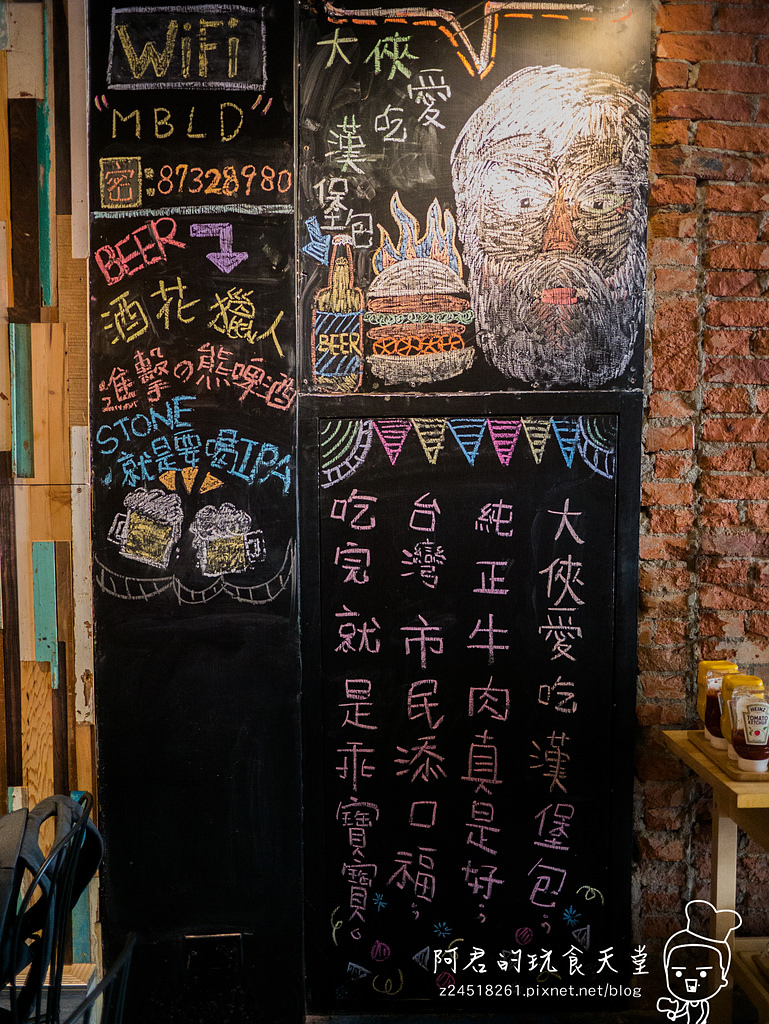 WiFi
"MBLD"
密:87328980
BEER
酒花獵人
進擊の熊啤酒
STONE
就是要喝IPA
大俠愛吃漢堡包
BEER
大俠愛吃漢堡包；
純正牛肉真是好；
台灣市民添口福；
吃完就是乖寶寶。
HEINZ
TOMATO
KETCHUP
阿君的玩食天堂
z24518261.pixnet.net/blog